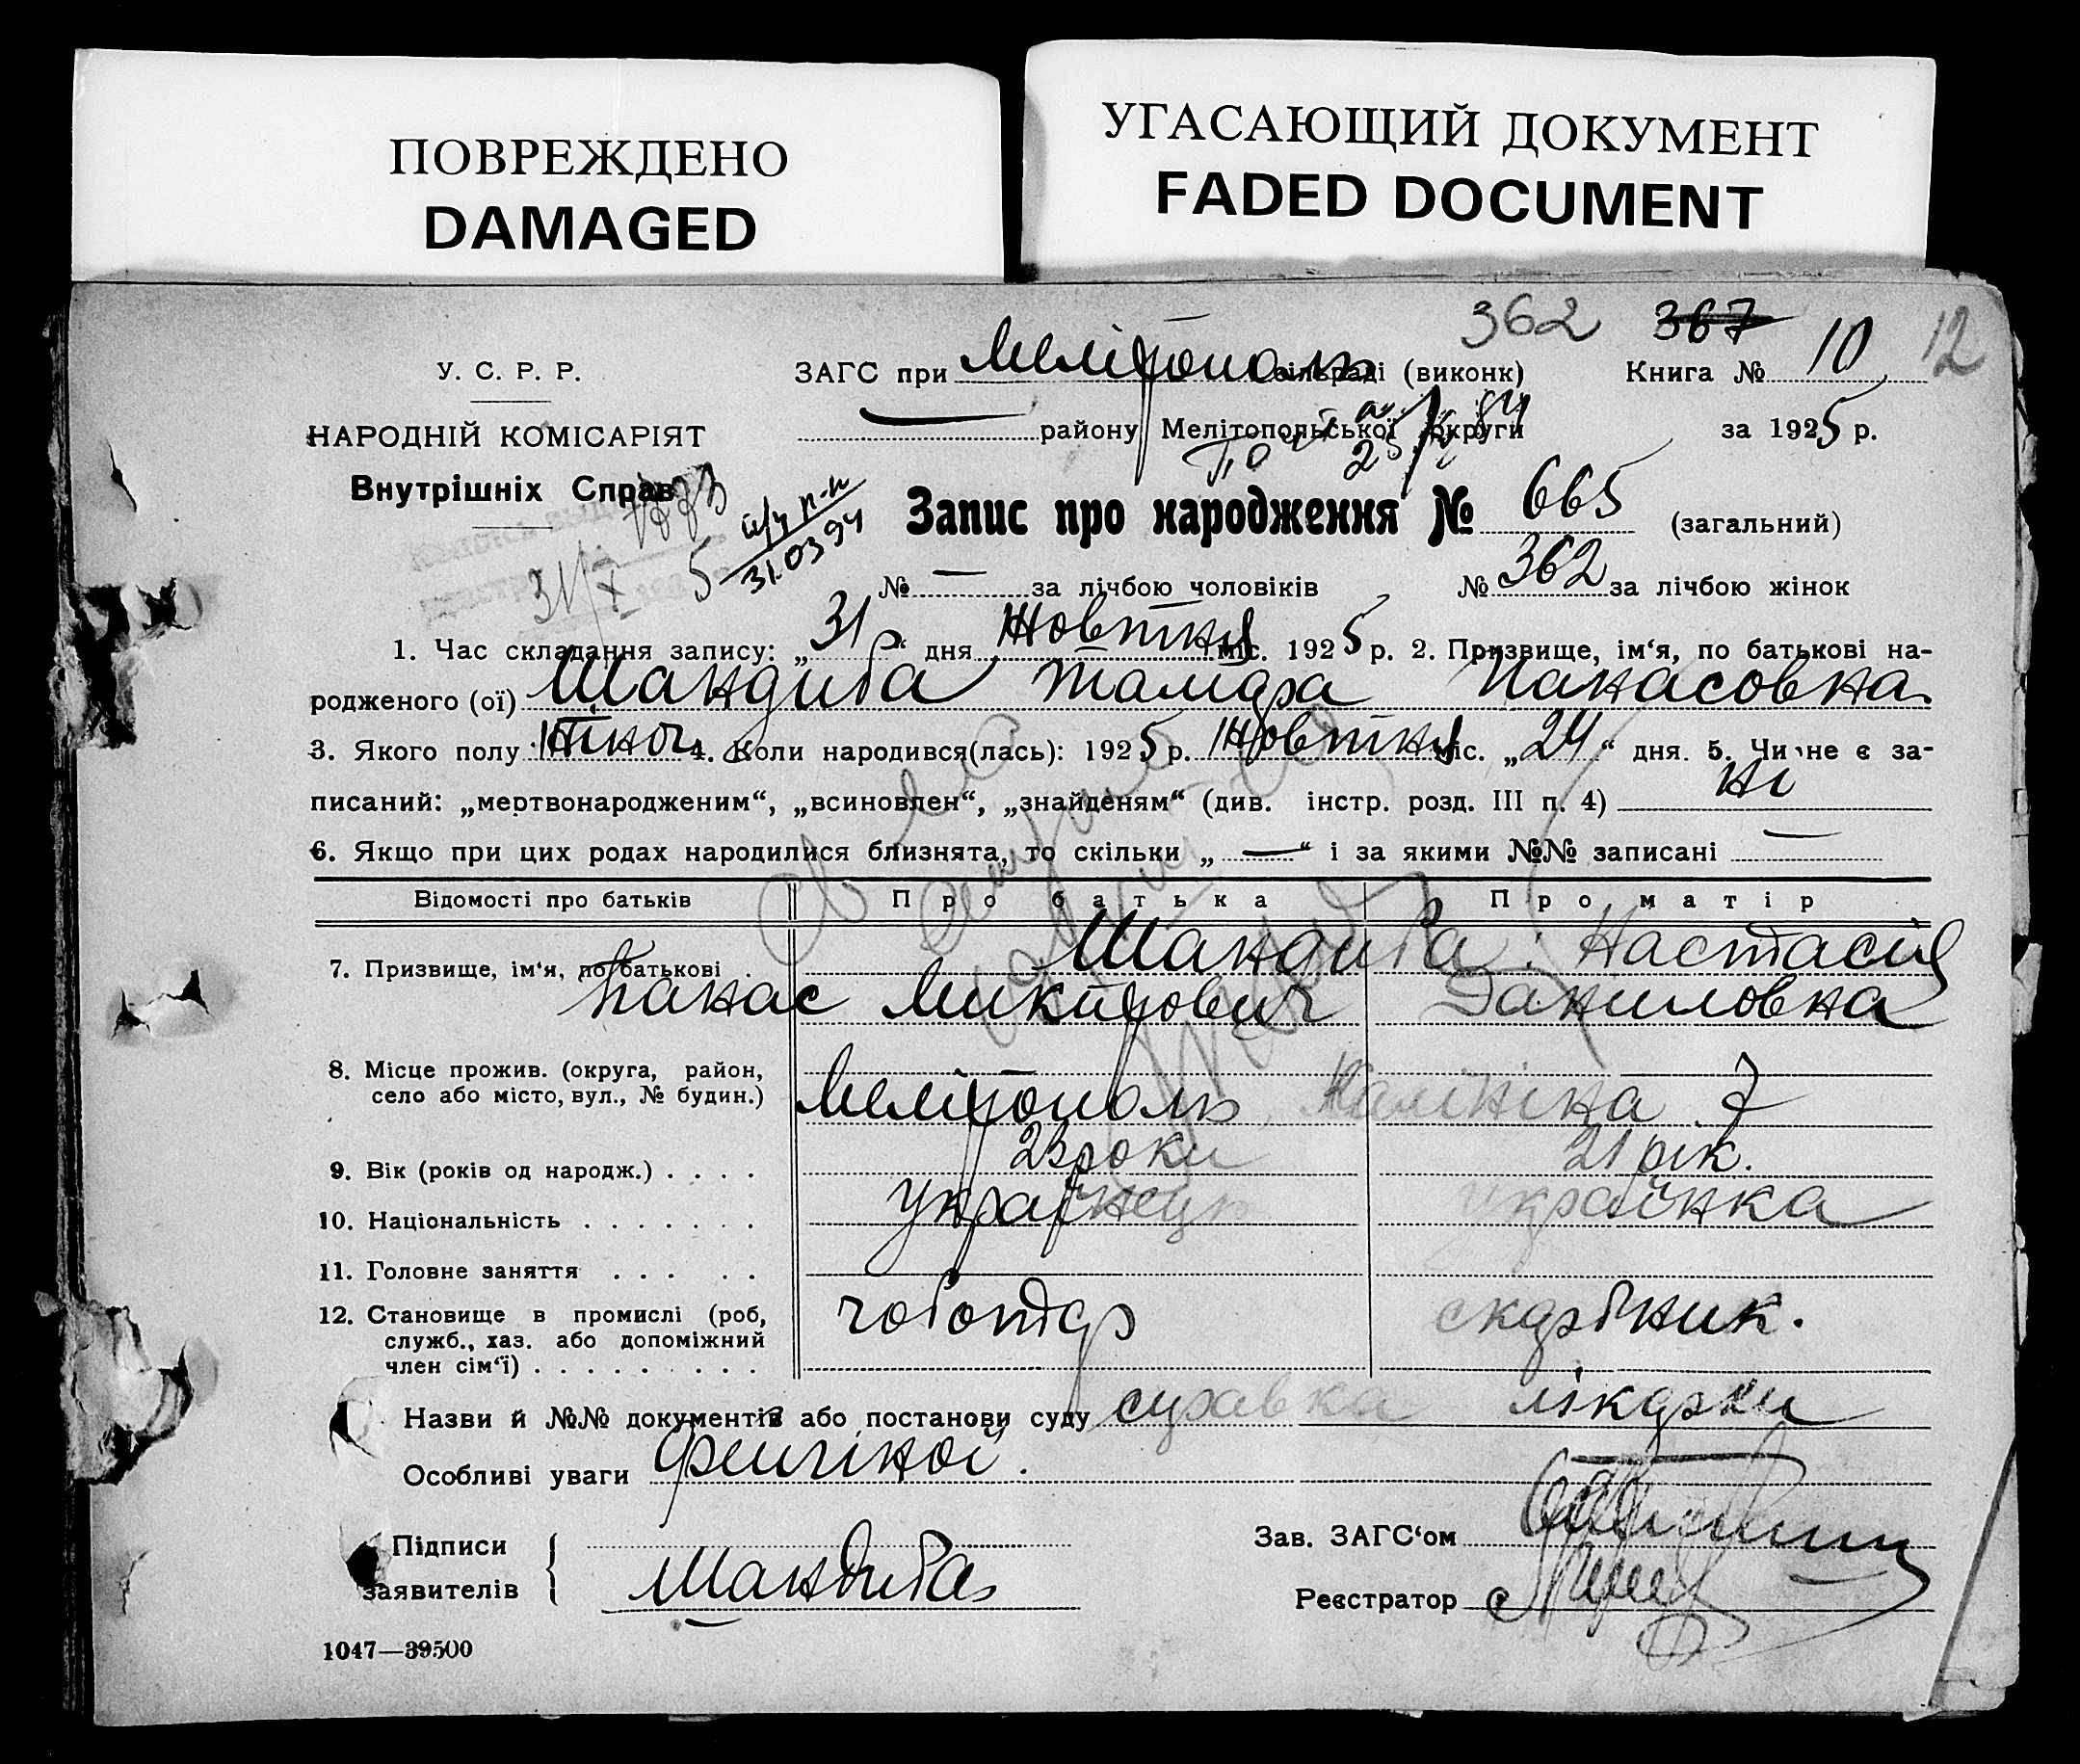 ПОВРЕЖДЕНО
DAMAGED
УГАСАЮЩИЙ ДОКУМЕНТ
FADED DOCUMENT
362 367 12
У. С. Р. Р.
ЗАГС при Мелітополь сільраді (виконк) Книга № 10
НАРОДНІЙ КОМІСАРІЯТ
району Мелітопольської округи за 1925 р.
Внутрішніх Справ
Запис про народження № 665 (загальний)
31.03.94
31/X 5
№ — за лічбою чоловіків № 362 за лічбою жінок
1. Час складання запису: „31“ дня Жовтня міс. 1925 р. 2. Призвище, ім‘я, по батькові на-
родженого (ої) Шандиба Тамара Панасовна
3. Якого полу жіноч. 4. Коли народився(лась): 1925 р. Жовтня міс. „24“ дня. 5. Чи не є за-
писаний: „мертвонародженим“, „всиновлен“, „знайденям“ (див. інстр. розд. III п. 4) ні
6. Якщо при цих родах народилися близнята, то скільки „—“ і за якими №№ записані —
Відомості про батьків Про батька Про матір
7. Призвище, ім‘я, по батькові . Шандиба : Настасия
Панас Микитович Даниловна
8. Місце прожив. (округа, район,
село або місто, вул., № будин.) Мелітополь, Калініна 7
9. Вік (років од народж.) . . . . 23 роки 21 рік.
10. Національність . . . . . . . українець українка
11. Головне заняття . . . . .
12. Становище в промислі (роб,
служб., хаз. або допоміжний
член сім‘ї) . . . . . . . . . чоботар скарбник.
Назви й №№ документів або постанови суду справка лікарки
Особливі уваги Фейгіної.
Підписи
заявителів Шандиба
Зав. ЗАГС‘ом
Реєстратор
1047—39500